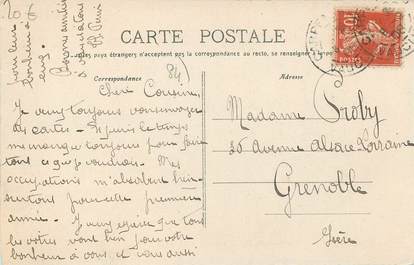 CARTE POSTALE
Tous les pays étrangers n'acceptent pas la correspondance au recto, se renseigner à la poste
Correspondance
Adresse
84)
Chère Cousine
Je veux toujours vous envoyer
des cartes. Et puis le temps
me manque toujours pour faire
tout ce que je voudrais. Mes
occupations m'absorbent bien
surtout pour cette première
année. Je veux espérer que tous
les vôtres vont bien pour votre
bonheur à vous, et vous aussi
pour leur
bonheur à
eux.
Bonne amitié
Madame Proby
36 Avenue Alsace Lorraine
Grenoble
Isère
10